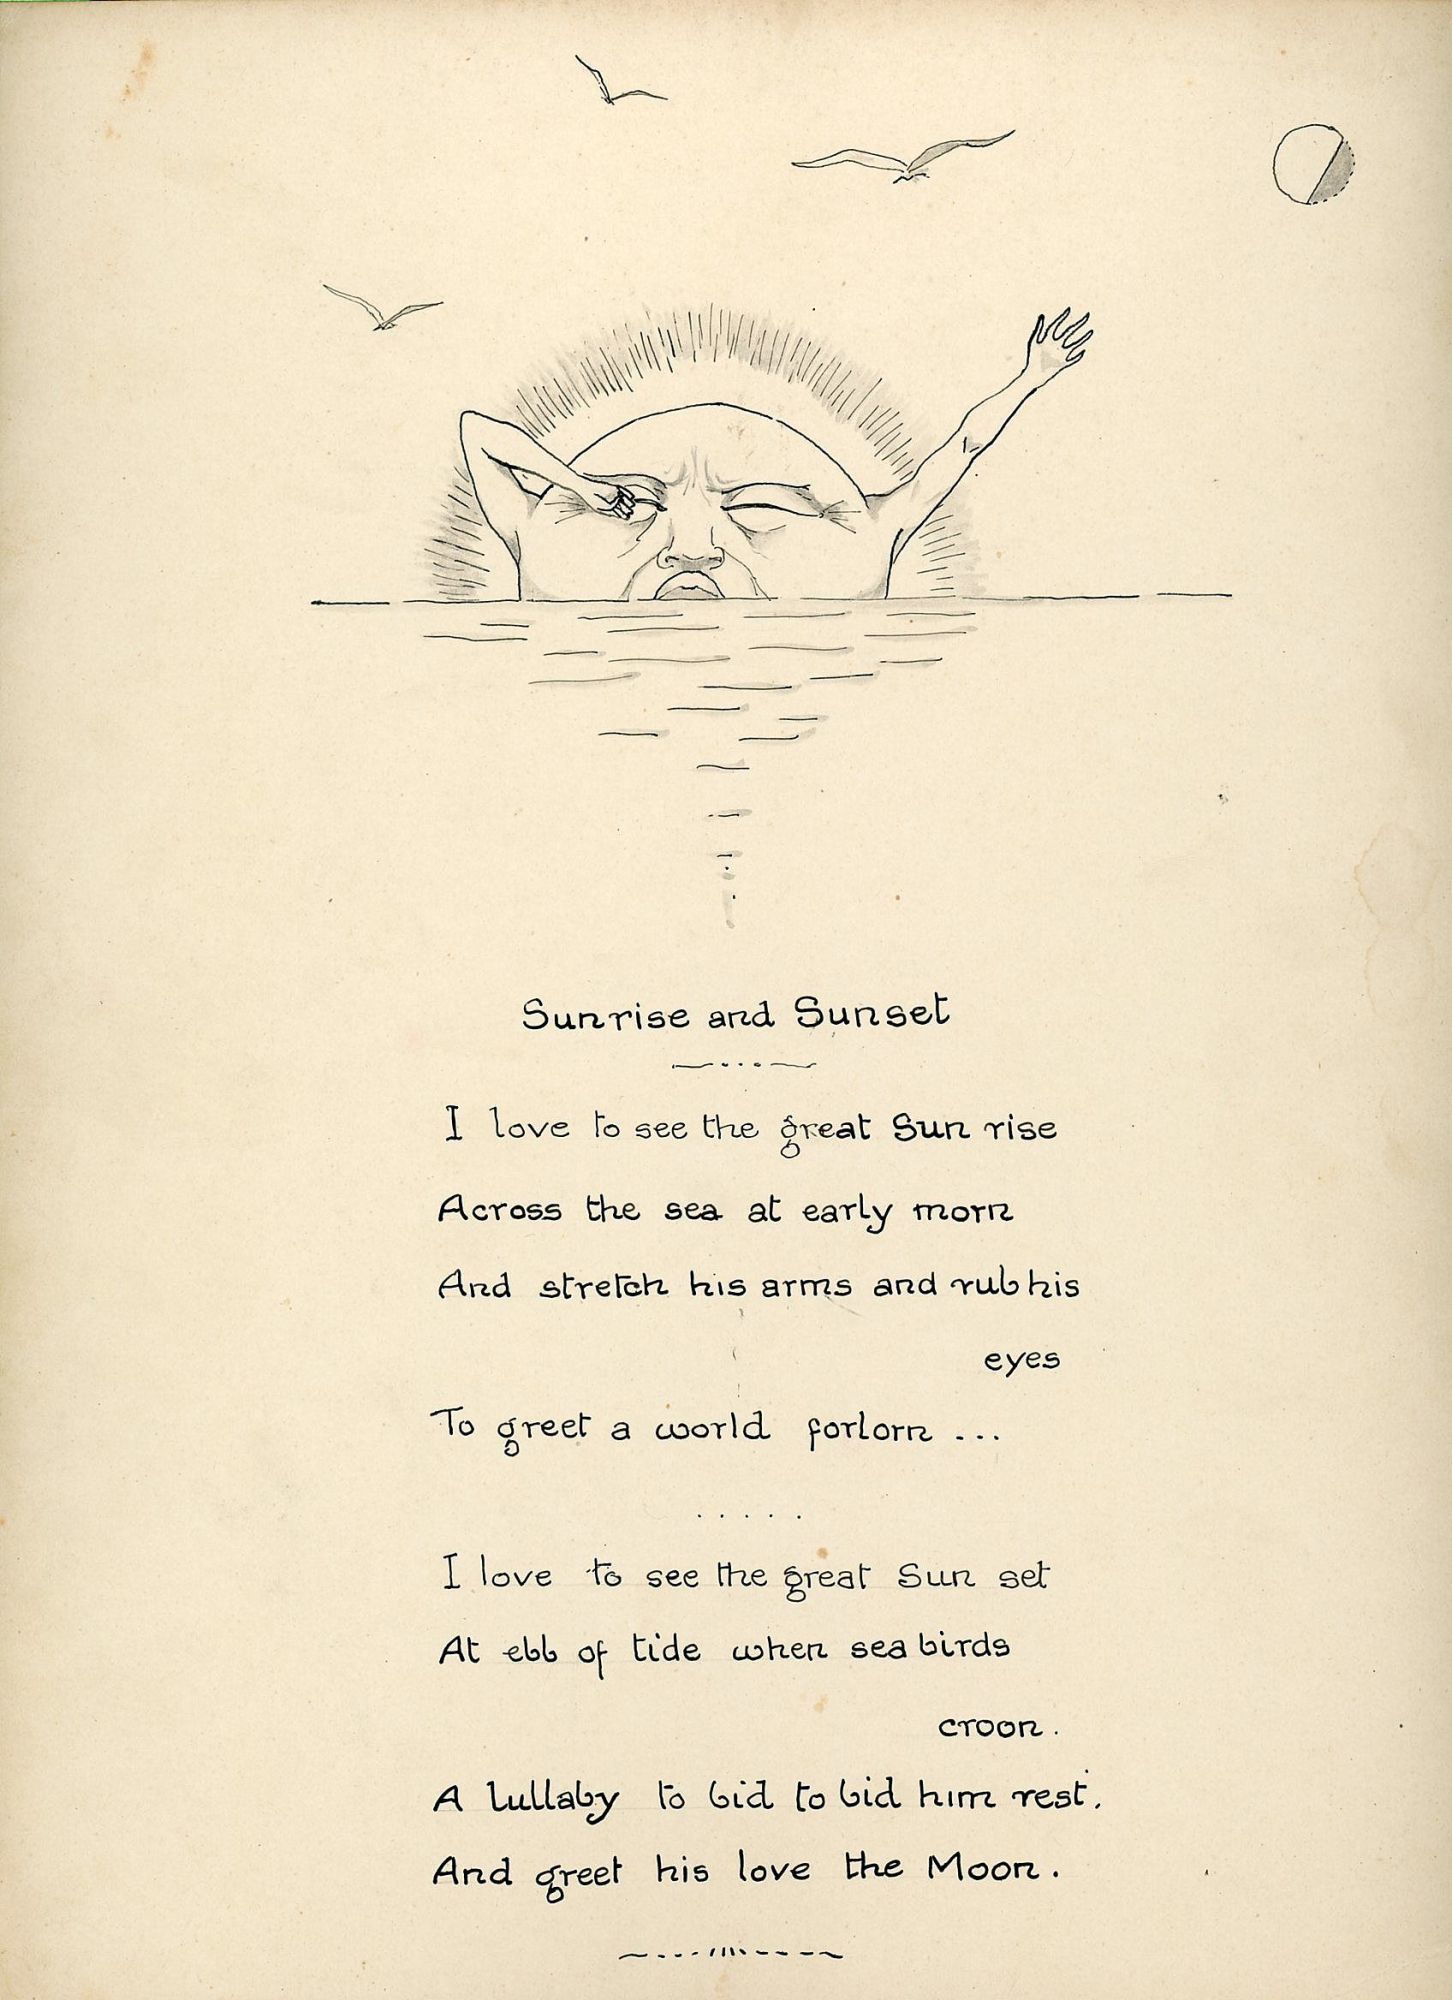 Sunrise and Sunset
I love to see the great Sun rise
Across the sea at early morn
And stretch his arms and rub his
eyes
To greet a world forlorn ...
.....
I love to see the great Sun set
At ebb of tide when sea birds
croon.
A lullaby to bid to bid him rest.
And greet his love the Moon.